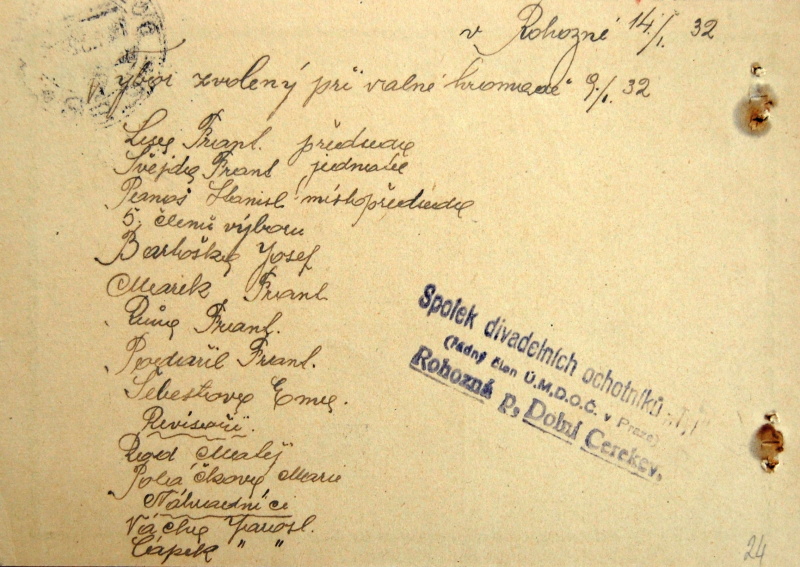 v Rohozné 14./I. 32
Výbor zvolený při valné hromadě 9./I. 32
Frant. předseda
Švejda Frant. jednatel
Panoš Stanisl. místopředseda
5. členů výboru
Bartoška Josef
Marek Frant.
Růža Frant.
Podařil Frant.
Šebestova Ema.
Revisoři.
Malý
Poláčkova Marie
Náhradníci
Vácha Jarosl.
Čápek " "
Spolek divadelních ochotníků
(řádný člen Ú.M.D.O.Č. v Praze)
Rohozná p. Dolní Cerekev.
24